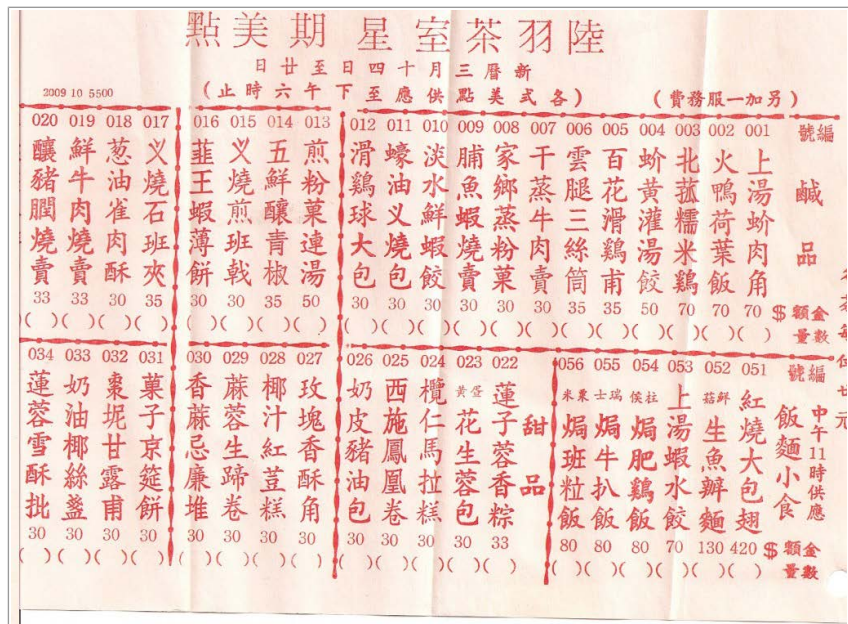 陸羽茶室星期美點
新曆三月十四日至廿日
(各式美點供應至下午六時止)
(另加一服務費)
2009 10 5500
編號
鹹品
金額 $
數量
001 上湯蚧肉角 70 ( )
002 火鴨荷葉飯 70 ( )
003 北菰糯米鷄 70 ( )
004 蚧黃灌湯餃 50 ( )
005 百花滑鷄甫 35 ( )
006 雲腿三絲筒 35 ( )
007 干蒸牛肉賣 30 ( )
008 家鄉蒸粉菓 30 ( )
009 脯魚蝦燒賣 30 ( )
010 淡水鮮蝦餃 30 ( )
011 蠔油义燒包 30 ( )
012 滑鷄球大包 30 ( )
013 煎粉菓連湯 50 ( )
014 五鮮釀青椒 35 ( )
015 义燒煎班戟 30 ( )
016 韮王蝦薄餅 30 ( )
017 义燒石班夾 35 ( )
018 葱油雀肉酥 30 ( )
019 鮮牛肉燒賣 33 ( )
020 釀豬膶燒賣 33 ( )
名茶每位廿元
編號
中午11時供應
飯麵小食
金額 $
數量
051 紅燒大包翅 420 ( )
052 鮮菇生魚辦麵 130 ( )
053 上湯蝦水餃 70 ( )
054 柱侯焗肥鷄飯 80 ( )
055 瑞士焗牛扒飯 80 ( )
056 粟米焗班粒飯 80 ( )
甜品
022 蓮子蓉香粽 33 ( )
023 蛋黃花生蓉包 30 ( )
024 欖仁馬拉糕 30 ( )
025 西施鳳凰卷 30 ( )
026 奶皮豬油包 30 ( )
027 玫塊香酥角 30 ( )
028 椰汁紅荳糕 30 ( )
029 蔴蓉生蹄卷 30 ( )
030 香蔴忌廉堆 30 ( )
031 菓子京筵餅 30 ( )
032 棗坭甘露甫 30 ( )
033 奶油椰絲盞 30 ( )
034 蓮蓉雪酥批 30 ( )